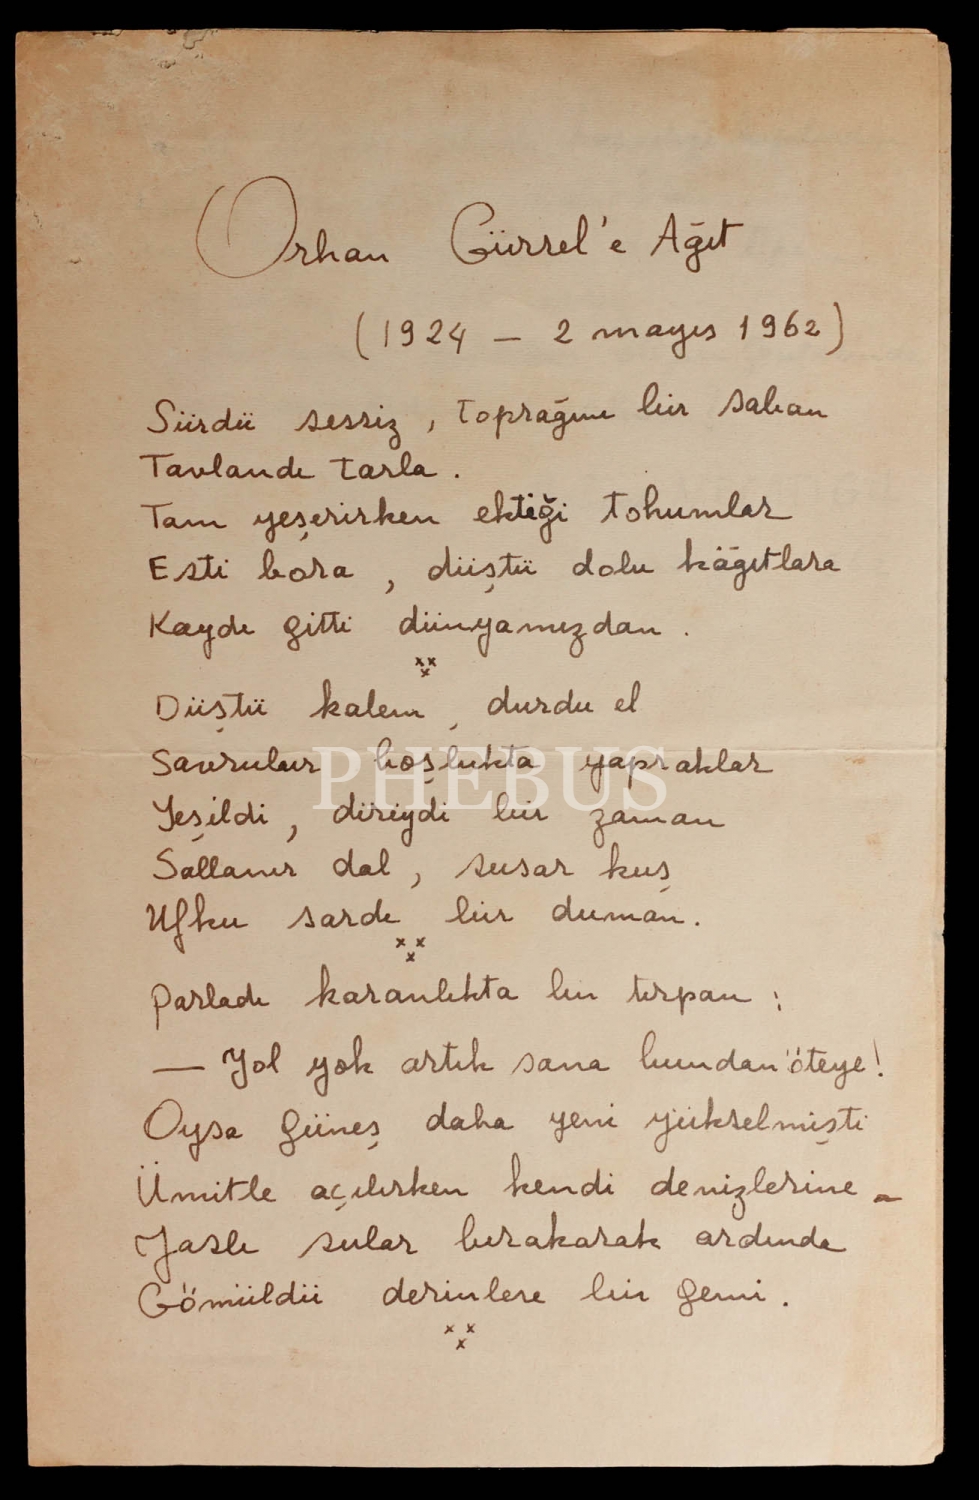 Orhan Gürsel'e Ağıt
(1924 — 2 mayıs 1962)
Sürdü sessiz, toprağını bir saban
Tavlandı tarla.
Tam yeşerirken ektiği tohumlar
Esti bora, düştü dolu kâğıtlara
Kaydı gitti dünyamızdan.
x x
x
Düştü kalem, durdu el
Savrulur boşlukta yapraklar
PHEBUS
Yeşildi, diriydi bir zaman
Sallanır dal, susar kuş
Ufku sardı bir duman.
x x
x
Parladı karanlıkta bir tırpan:
— Yol yok artık sana bundan öteye!
Oysa güneş daha yeni yükselmişti
Ümitle açılırken kendi denizlerine -
Yaslı sular bırakarak ardında
Gömüldü derinlere bir gemi.
x x
x